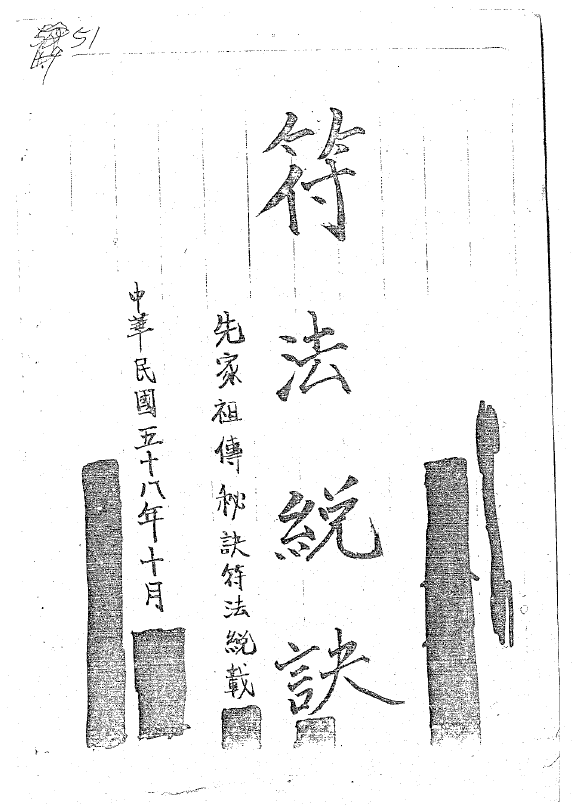 51
符法統訣
先家祖傳秘訣符法統載
中華民國五十八年十月